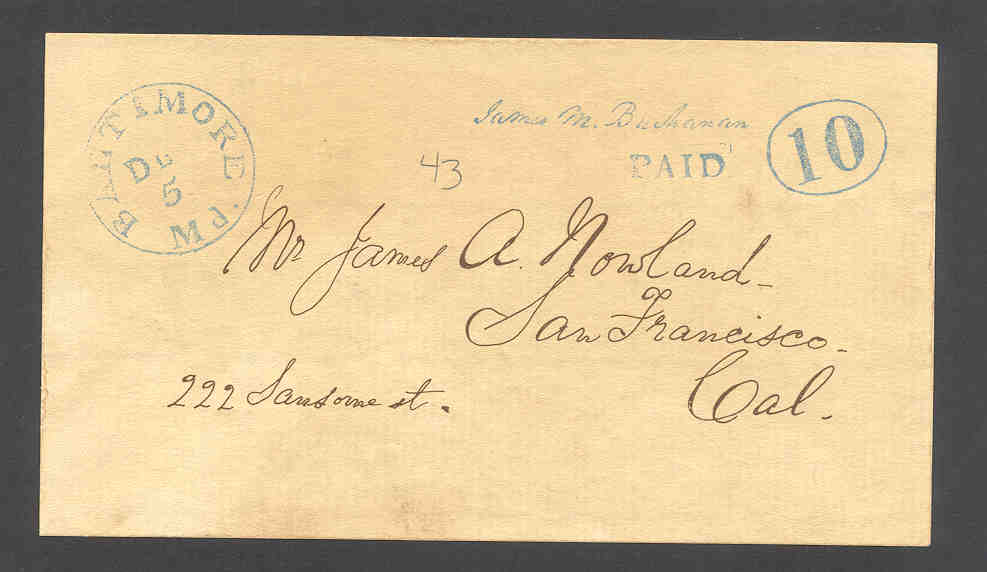 BALTIMORE Md.
DE
5
James M. Buchanan
PAID
10
43
Mr James A. Nowland
San Francisco.
Cal.
222 Sansome st.